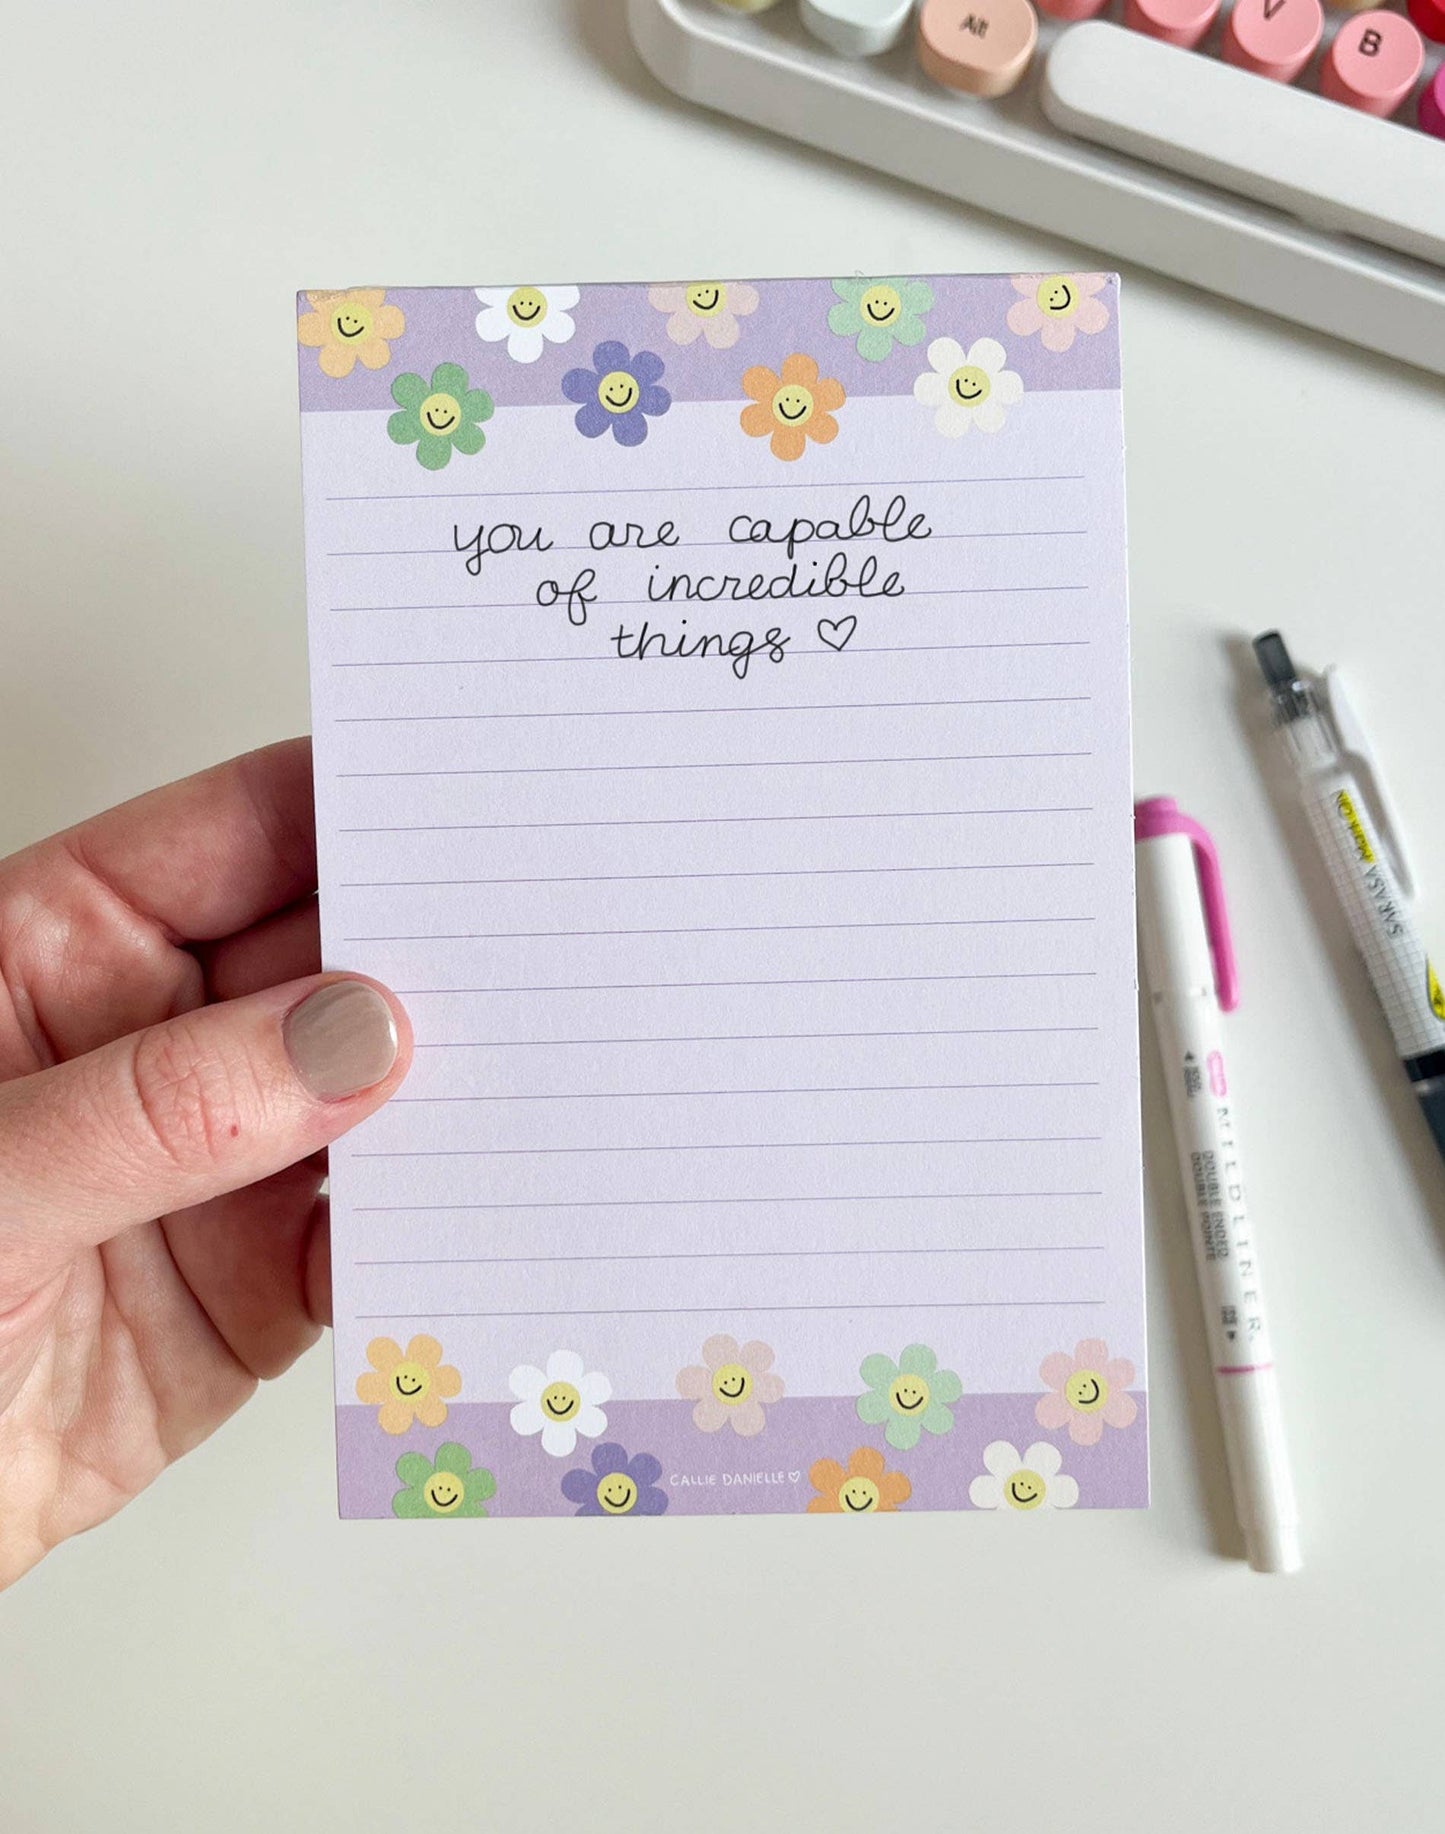 Alt
V
B
you are capable
of incredible
things ♡
SARASA Mark ON
MILDLINER
DOUBLE ENDED
DOUBLE POINTE
CALLIE DANIELLE ♡